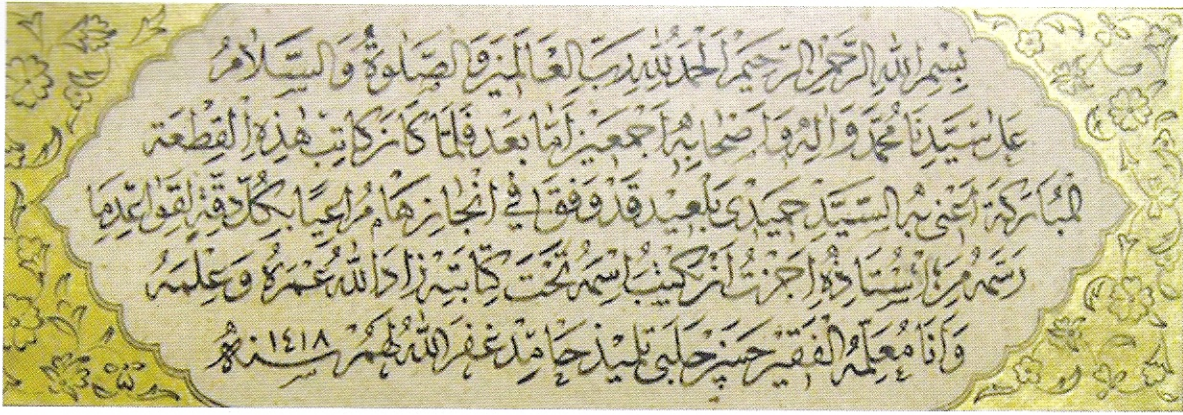 بِسْمِ اللهِ الرَّحْمٰنِ الرَّحِيمِ الْحَمْدُ لِلّٰهِ رَبِّ الْعَالَمِينَ وَالصَّلٰوةُ وَالسَّلَامُ
عَلٰى سَيِّدِنَا مُحَمَّدٍ وَاٰلِهِ وَاَصْحَابِهِ اَجْمَعِينَ اَمَّا بَعْدُ فَلَمَّا كَانَ كَاتِبُ هٰذِهِ الْقِطْعَةِ
الْمُبَارَكَةِ اَعْنِي بِهِ السَّيِّدَ حَمِيدِي بَلْعِيد قَدْ وَفَّقَ فِي اِنْجَازِهَا مُرَاعِيًا بِكُلِّ دِقَّةٍ لِقَوَاعِدِ مَا
رَسَمَهُ مِنْ اُسْتَاذِهِ اَجَزْتُ اَنْ يَكْتُبَ اِسْمَهُ تَحْتَ كِتَابَتِهِ زَادَ اللهُ عُمْرَهُ وَعِلْمَهُ
وَاَنَا مُعَلِّمُهُ الْفَقِيرُ حَسَن چَلَبِي تِلْمِيذُ حَامِد غَفَرَ اللهُ لَهُمْ سنة ١٤١٨ هـ